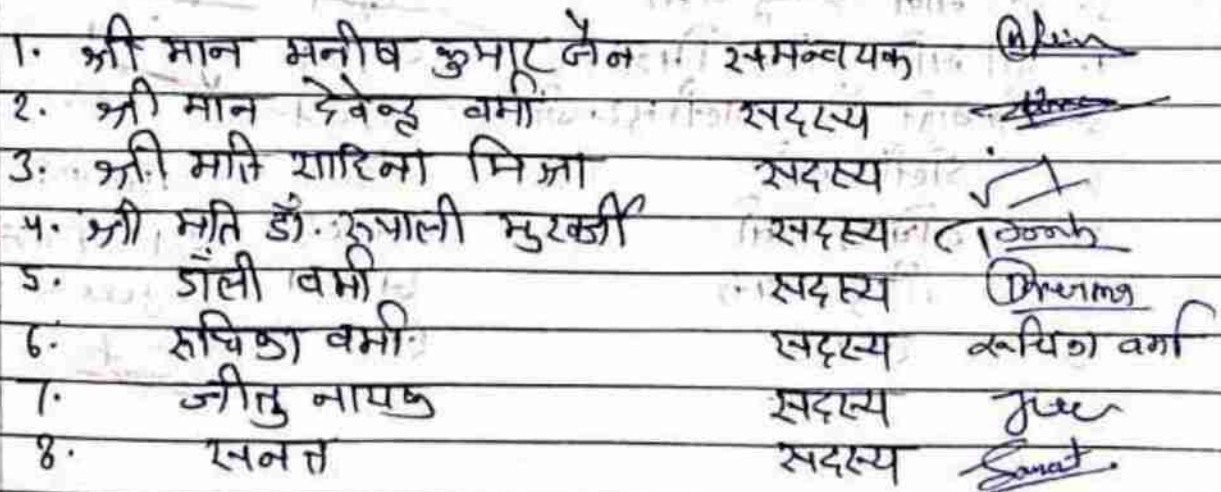 1. श्री मान मनीष कुमार जैन समन्वयक
2. श्री मान देवेन्द्र वर्मा सदस्य
3. श्री मति शाहिना मिर्जा सदस्य
4. श्री मति डॉ. रूपाली मुखर्जी सदस्य
5. डॉली वर्मा सदस्य Dverma
6. रुचिका वर्मा सदस्य रुचिका वर्मा
7. जीतु नायक सदस्य
8. सनत सदस्य Sanat